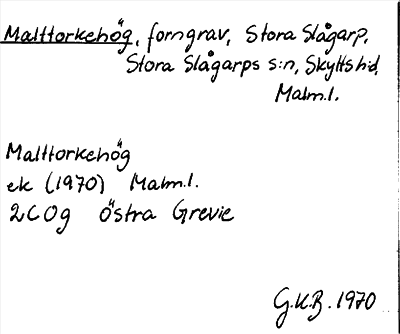 Malttorkehög, forngrav, Stora Slågarp,
Stora Slågarps s:n, Skytts hd,
Malm.l.
Malttorkehög
ek (1970) Malm.l.
2C0g Östra Grevie
G.K.B. 1970